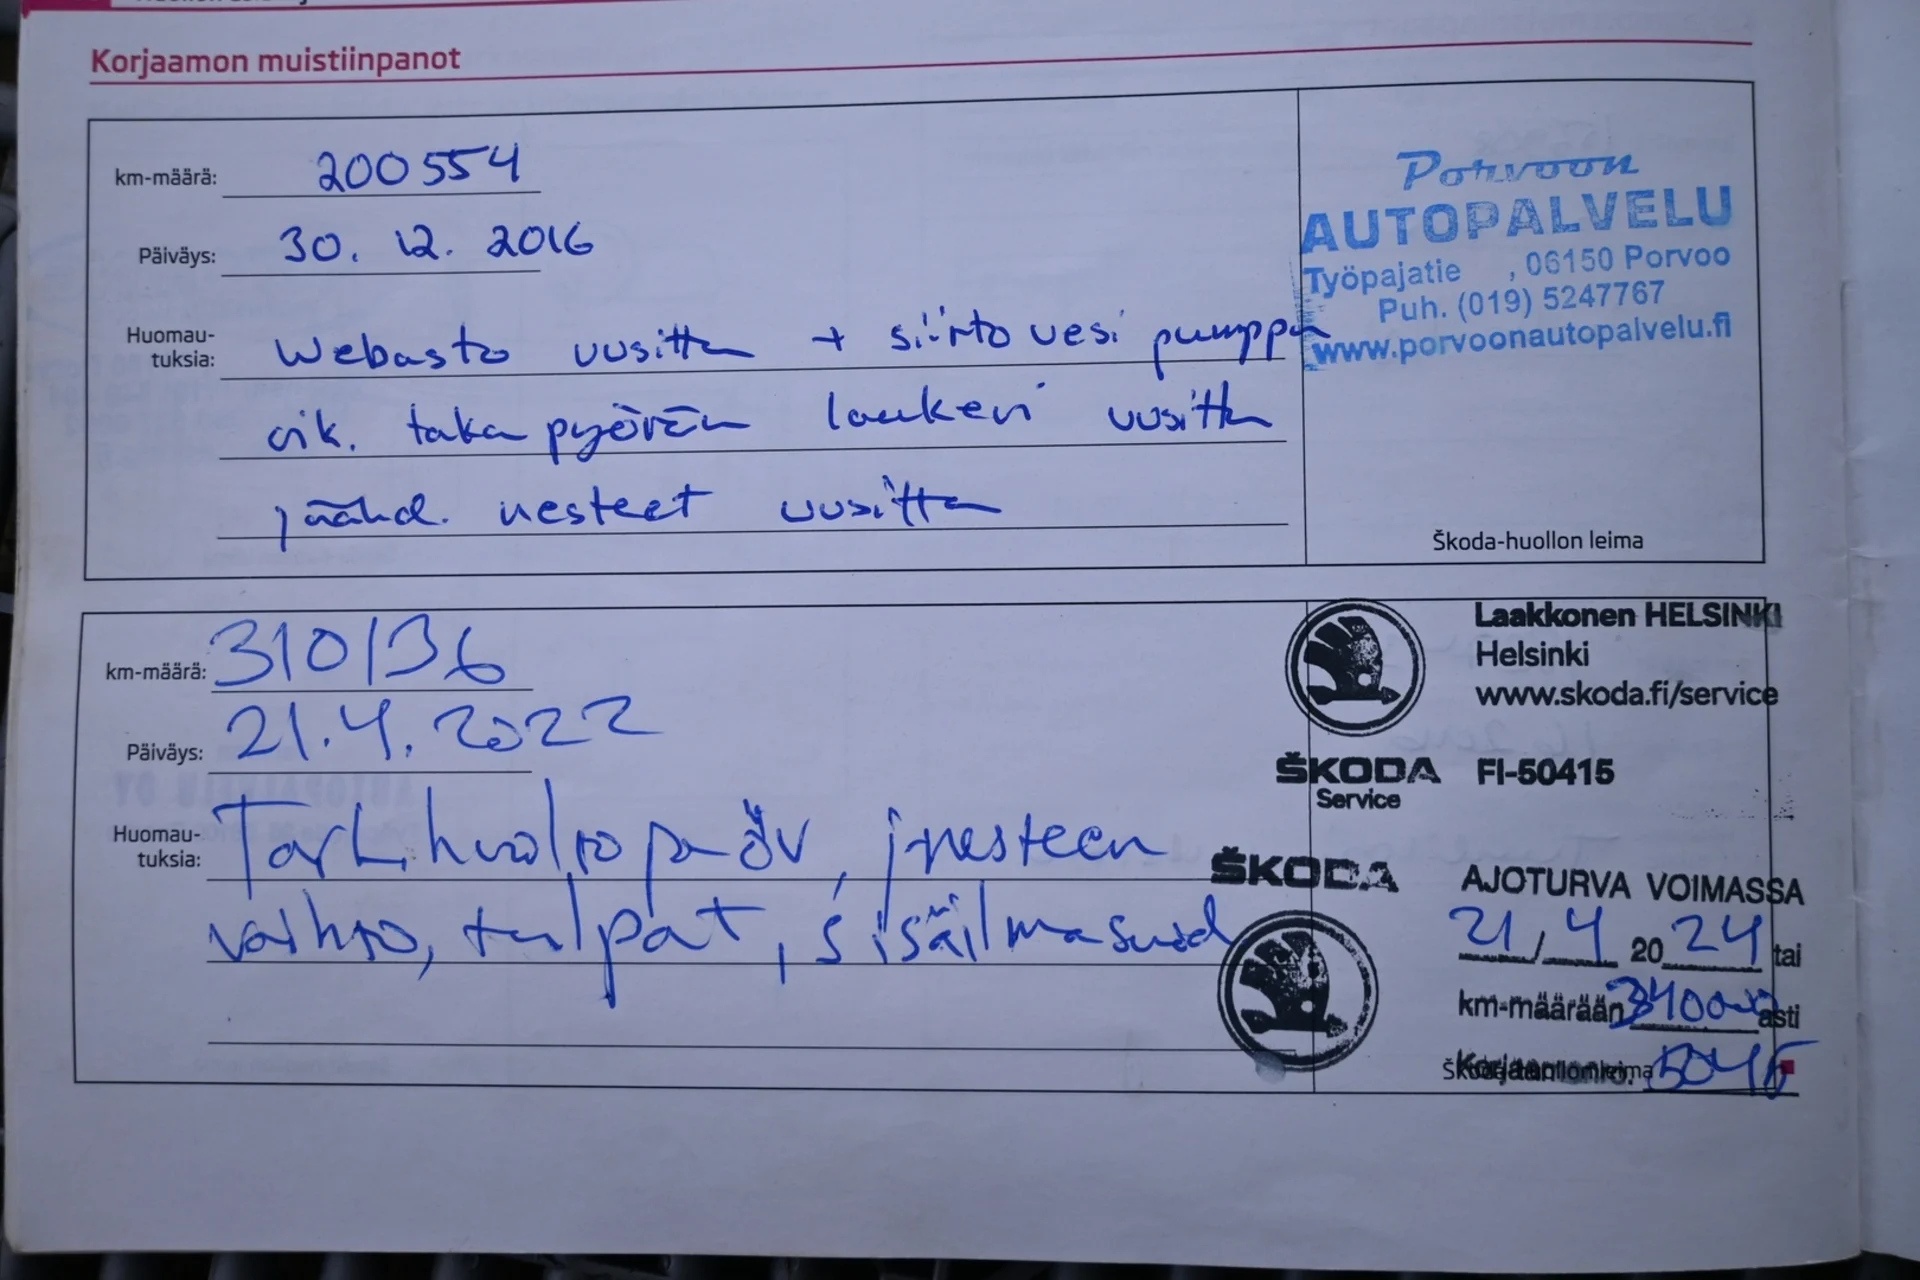 Korjaamon muistiinpanot
km-määrä: 200554
Päiväys: 30. 12. 2016
Huomau-
tuksia: Webasto uusittu + siirto vesi pumppu
oik. taka pyörän laakeri uusittu
jäähd. nesteet uusittu
Porvoon
AUTOPALVELU
Työpajatie , 06150 Porvoo
Puh. (019) 5247767
www.porvoonautopalvelu.fi
Škoda-huollon leima
km-määrä: 310136
Päiväys: 21.4.2022
Huomau-
tuksia: Tark. huolto, jnesteen
vaihto, tulpat, sisäilmasuod
Laakkonen HELSINKI
Helsinki
www.skoda.fi/service
ŠKODA FI-50415
Service
ŠKODA
AJOTURVA VOIMASSA
21/4 2024 tai
km-määrään 340000 asti